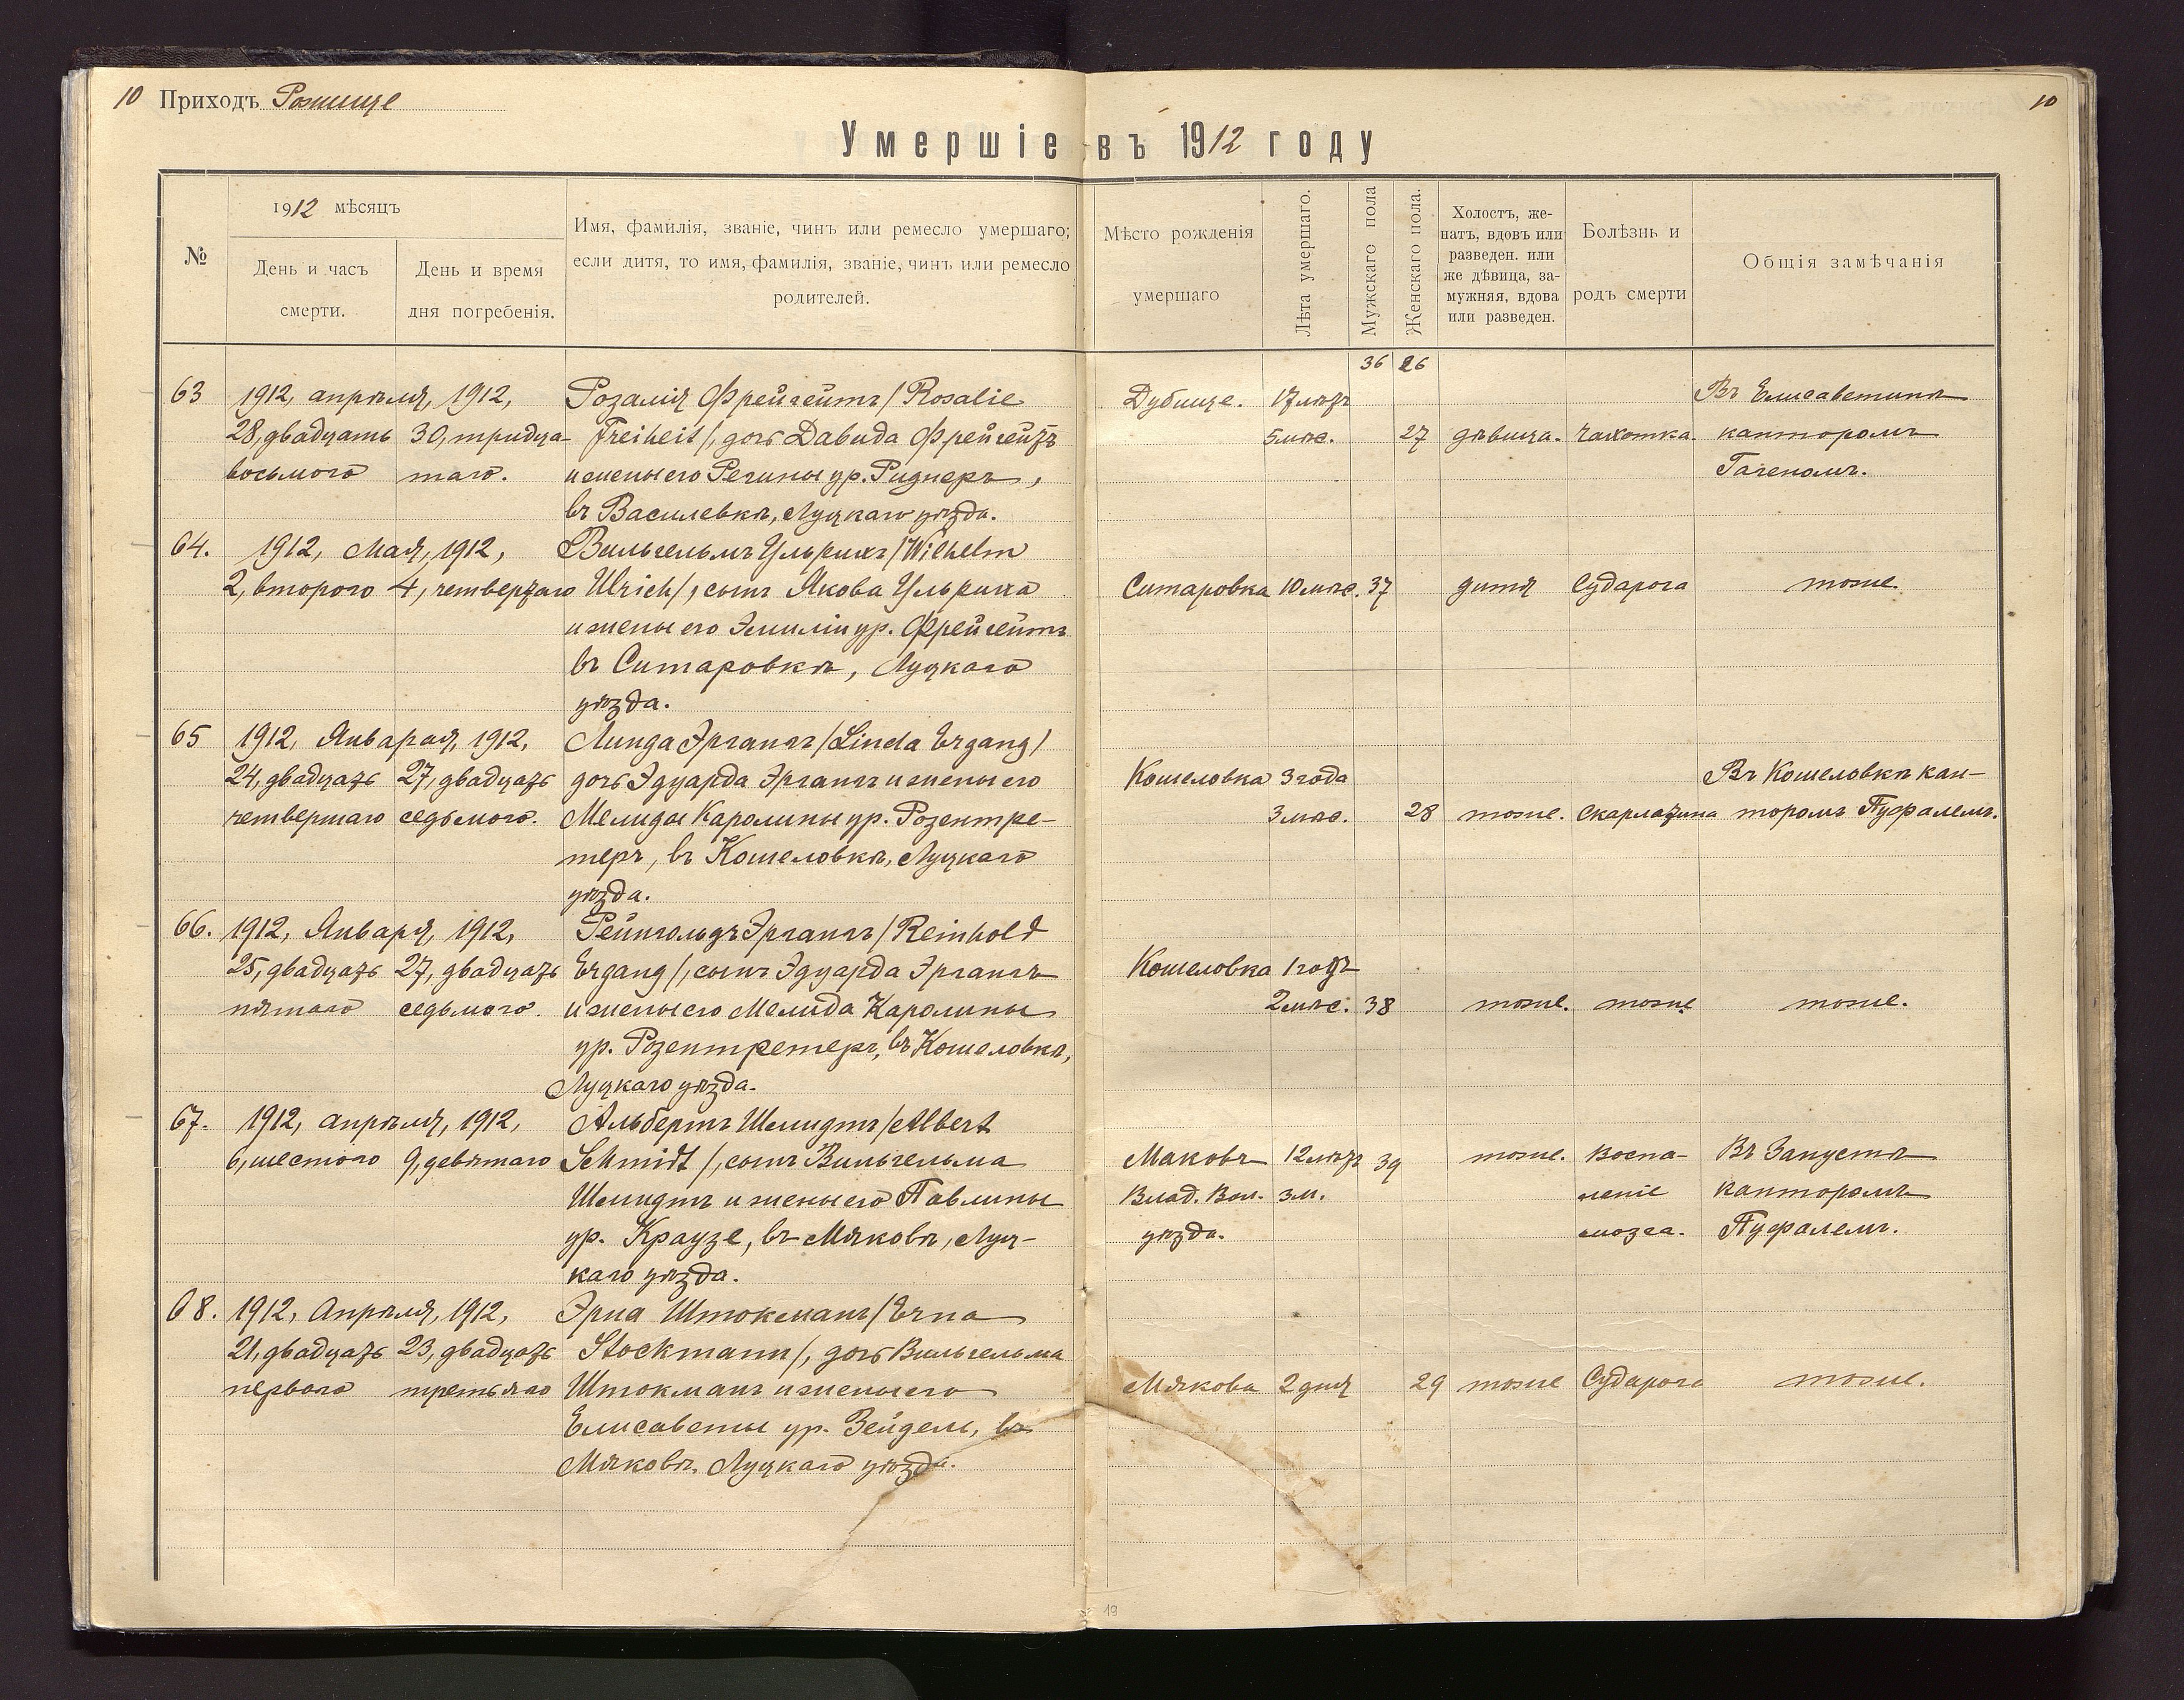 10 Приходъ Рожище
10
Умершіе въ 1912 году
№
1912 мѣсяцъ
День и часъ смерти.
День и время дня погребенія.
Имя, фамилія, званіе, чинъ или ремесло умершаго;
если дитя, то имя, фамилія, званіе, чинъ или ремесло
родителей.
Мѣсто рожденія
умершаго
Лѣта умершаго.
Мужскаго пола
Женскаго пола.
Холостъ, же-
натъ, вдовъ или
разведен. или
же дѣвица, за-
мужняя, вдова
или разведен.
Болѣзнь и
родъ смерти
Общія замѣчанія
36 26
63 1912, апрѣля, 1912, Розалія Фрейгейтъ /Rosalie Дубище. 17 лѣтъ Въ Елисаветинѣ
28, двадцать 30, тридца- Freiheit/, дочь Давида Фрейгейтъ 5 мѣс. 27 дѣвица. чахотка. канторомъ
восьмого таго. и жены его Регины ур. Риднеръ, Гагеномъ.
въ Василевкѣ, Луцкаго уѣзда.
64. 1912, Мая, 1912, Вильгельмъ Ульрихъ /Wilhelm
2, второго 4, четвертаго Ulrich/, сынъ Якова Ульриха Ситаровка 10 мѣс. 37 дитя Судорога тоже.
и жены его Эмиліи ур. Фрейгейтъ
въ Ситаровкѣ, Луцкаго
уѣзда.
65 1912, Январая, 1912, Линда Эргангъ /Linda Ergang/
24, двадцать 27, двадцать дочь Эдуарда Эргангъ и жены его Кошеловка 3 года Въ Кошеловкѣ кан-
четвертаго седьмого. Мелиды Каролины ур. Розентре- 3 мѣс. 28 тоже. скарлатина торомъ Пуфалемъ.
теръ, въ Кошеловкѣ, Луцкаго
уѣзда.
66. 1912, Января, 1912, Рейнгольдъ Эргангъ /Reinhold
25, двадцать 27, двадцать Ergang/, сынъ Эдуарда Эргангъ Кошеловка 1 годъ
пятаго седьмого. и жены его Мелида Каролины 2 мѣс. 38 тоже. тоже тоже.
ур. Розентретеръ, въ Кошеловкѣ,
Луцкаго уѣзда.
67. 1912, апрѣля, 1912, Альбертъ Шмидтъ /Albert
6, шестого 9, девятаго Schmidt/, сынъ Вильгельма Маковъ 12 лѣтъ 39 тоже. Воспа- Въ Запустѣ
Шмидтъ и жены его Павлины Влад. Вол. 3 м. леніе канторомъ
ур. Краузе, въ Мяковѣ, Луц- уѣзда. мозга. Пуфалемъ.
каго уѣзда.
68. 1912, Апрѣля, 1912, Эрна Штокманъ /Erna
21, двадцать 23, двадцать Stockmann/, дочь Вильгельма
перваго третьяго Штокманъ и жены его Мякова 2 дня 29 тоже Судорога тоже.
Елисаветы ур. Зейдель, въ
Мяковѣ, Луцкаго уѣзда.
19